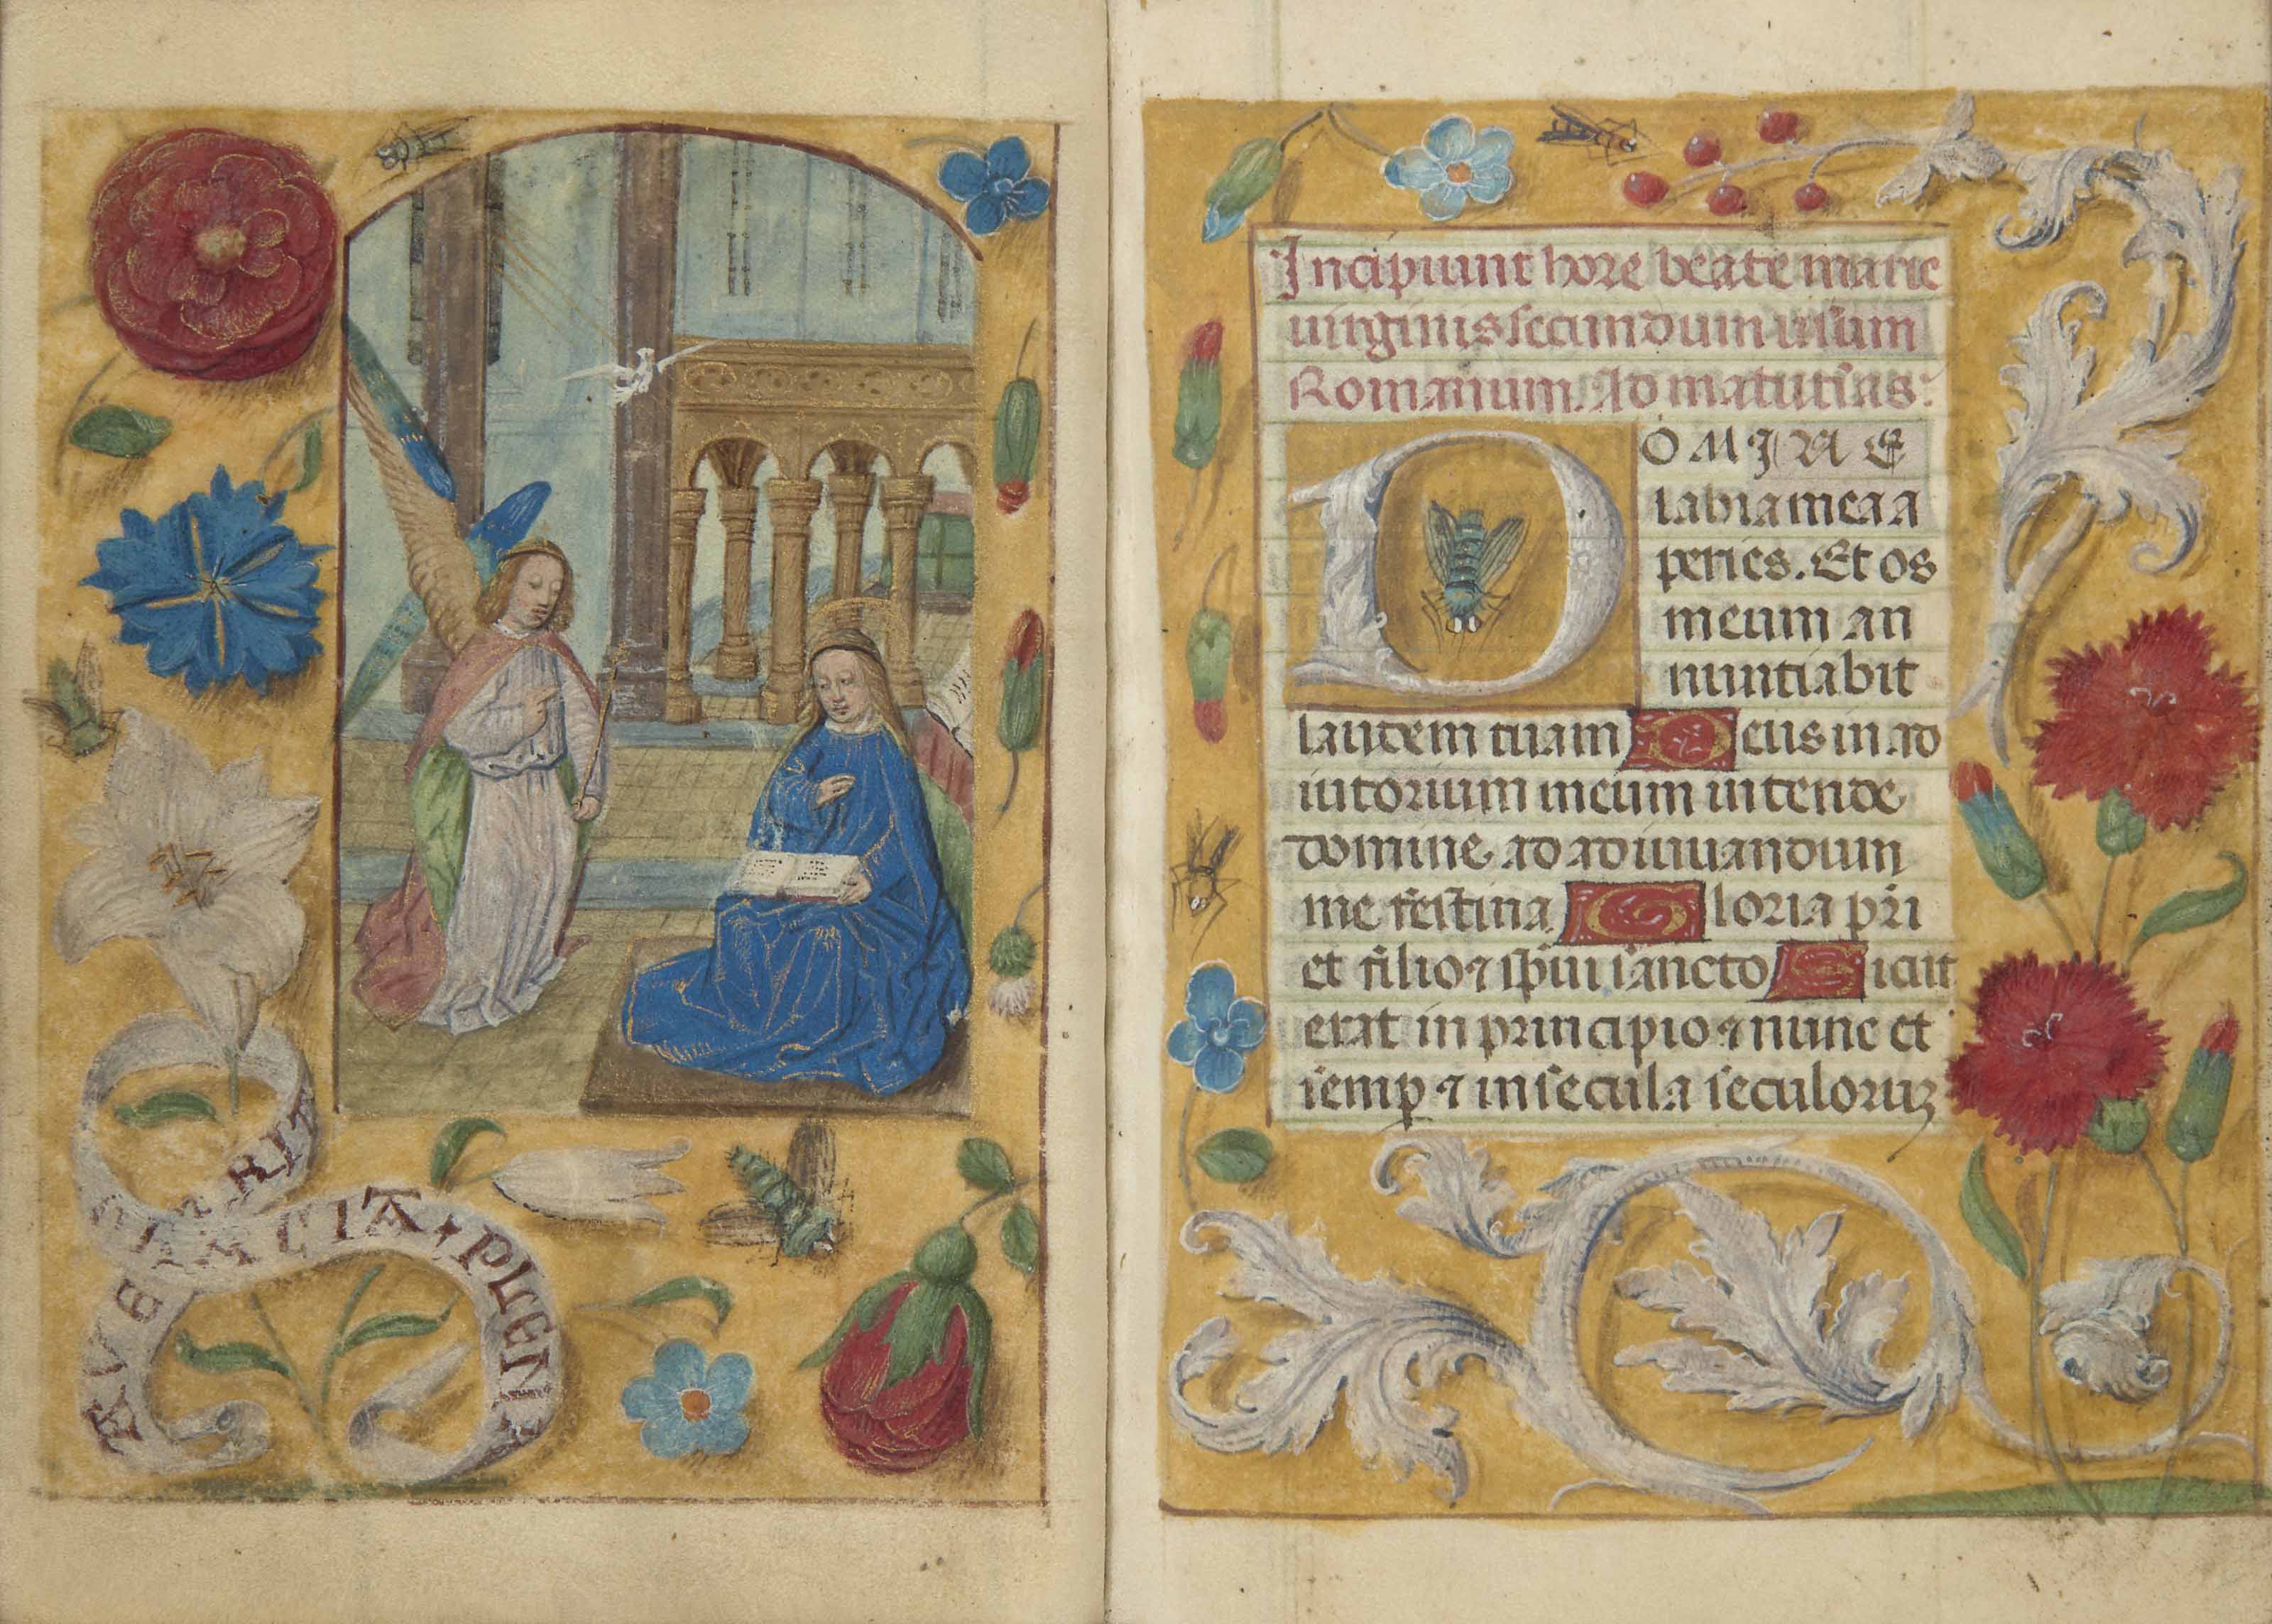 AVE GRACIA PLENA
Incipiunt hore beate marie
uirginis secundum usum
Romanum. Ad matutias:
DOMINE
labia mea a
peries. Et os
meum an
nuntiabit
laudem tuam Deus in ad
iutorium meum intende
domine ad adiuuandum
me festina Gloria pri
et filio ⁊ spiui sancto Sicut
erat in principio ⁊ nunc et
semp ⁊ in secula seculoruz